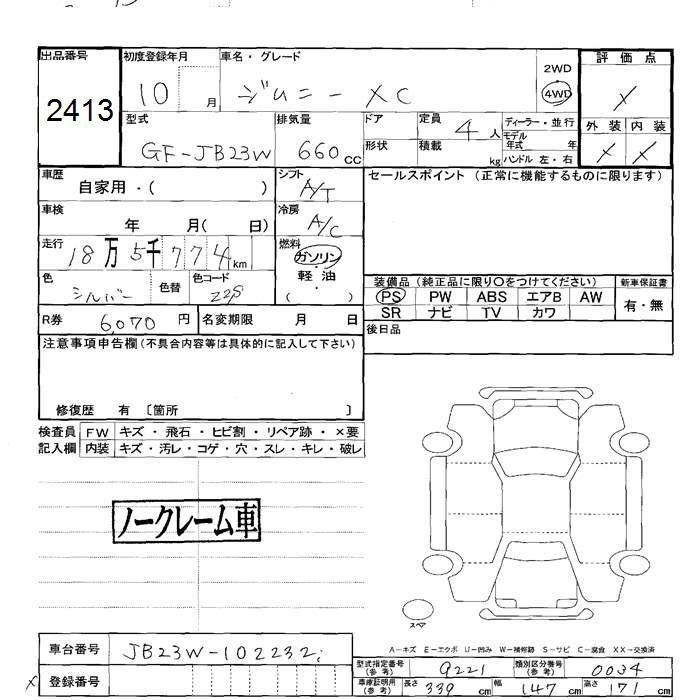 出品番号 初度登録年月 車名・グレード 2WD 評価点
2413 10 月 ジムニー XC 4WD ×
型式 排気量 ドア 定員 4 人 ディーラー・並行 外装 内装
GF-JB23W 660 cc 形状 積載 kg モデル年式 年 × ×
ハンドル 左・右
車歴 自家用・( ) シフト A/T セールスポイント (正常に機能するものに限ります)
車検 年 月( 日) 冷房 A/C
走行 18万5千774km 燃料 ガソリン・軽油・( )
色 シルバー 色替 色コード Z2S
装備品 (純正品に限り○をつけてください) 新車保証書
PS PW ABS エアB AW 有・無
SR ナビ TV カワ
R券 6,070 円 名変期限 月 日 後日品
注意事項申告欄(不具合内容等は具体的に記入して下さい)
修復歴 有 〔箇所 〕
検査員 FW キズ・飛石・ヒビ割・リペア跡・×要
記入欄 内装 キズ・汚レ・コゲ・穴・スレ・キレ・破レ
ノークレーム車
スペア
A-キズ E-エクボ U-凹み W-補修跡 S-サビ C-腐食 XX-交換済
車台番号 JB23W-102232
型式指定番号(参考) 9221 類別区分番号(参考) 0034
× 登録番号
車庫証明用(参考) 長さ 339 cm 幅 147 cm 高さ 171 cm